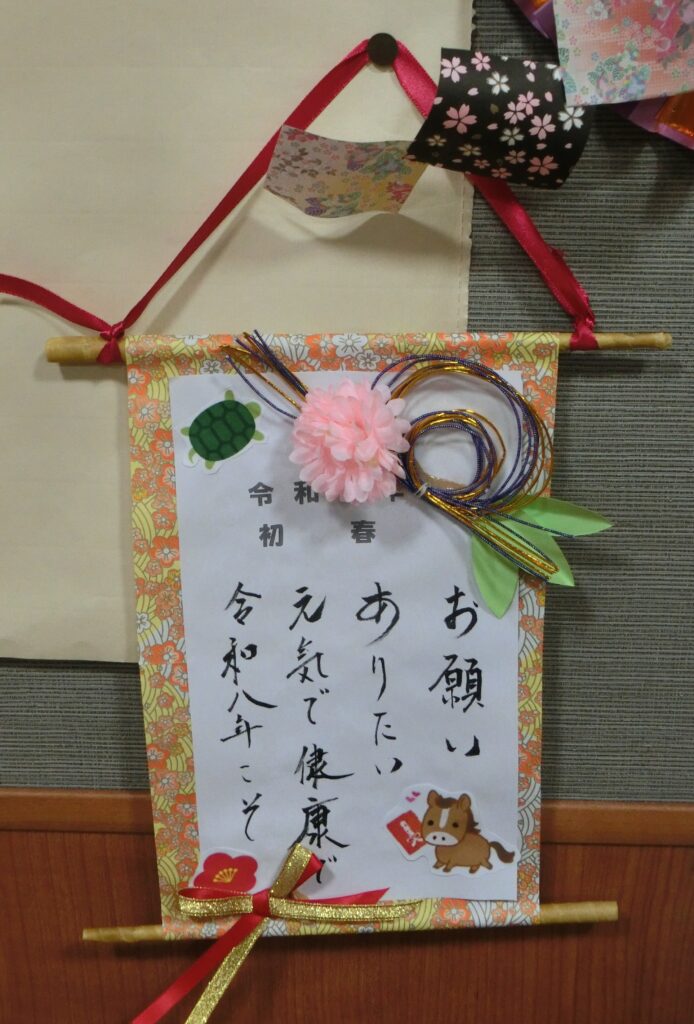 令和
初春
お願い
ありたい
元気で健康で
令和八年こそ